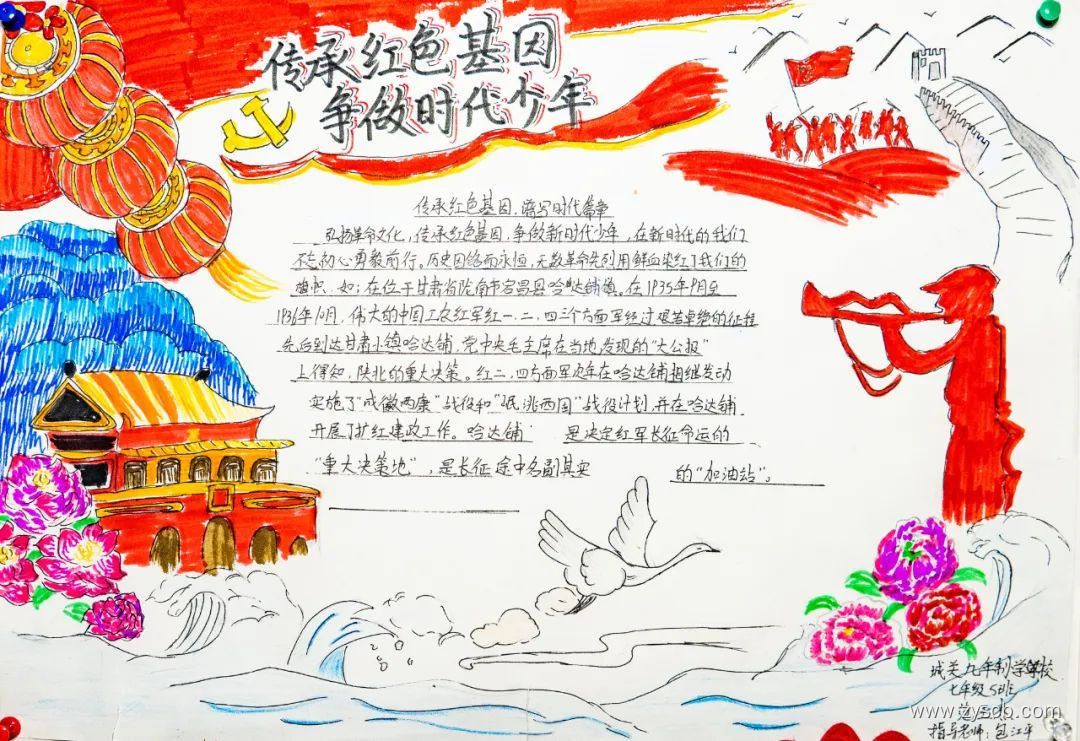 传承红色基因
争做时代少年
传承红色基因，谱写时代篇章
弘扬革命文化，传承红色基因，争做新时代少年，在新时代的我们
不忘初心勇毅前行。历史因铭而永恒，无数革命先烈用鲜血染红了我们的
旗帜。如：在位于甘肃省陇南市宕昌县哈达铺镇。在1935年9月至
1936年10月，伟大的中国工农红军红一、二、四三个方面军经过艰苦卓绝的征程
先后到达甘肃小镇哈达铺，党中央毛主席在当地发现的“大公报”
上得知，陕北的重大决策。红二、四方面军次年在哈达铺相继发动
实施了“成徽两康”战役和“岷洮西固”战役计划，并在哈达铺
开展了扩红建政工作。哈达铺 是决定红军长征命运的
“重大决策地”，是长征途中名副其实 的“加油站”。
城关九年制学校
七年级5班
指导老师：包江平
www.zysdb.com